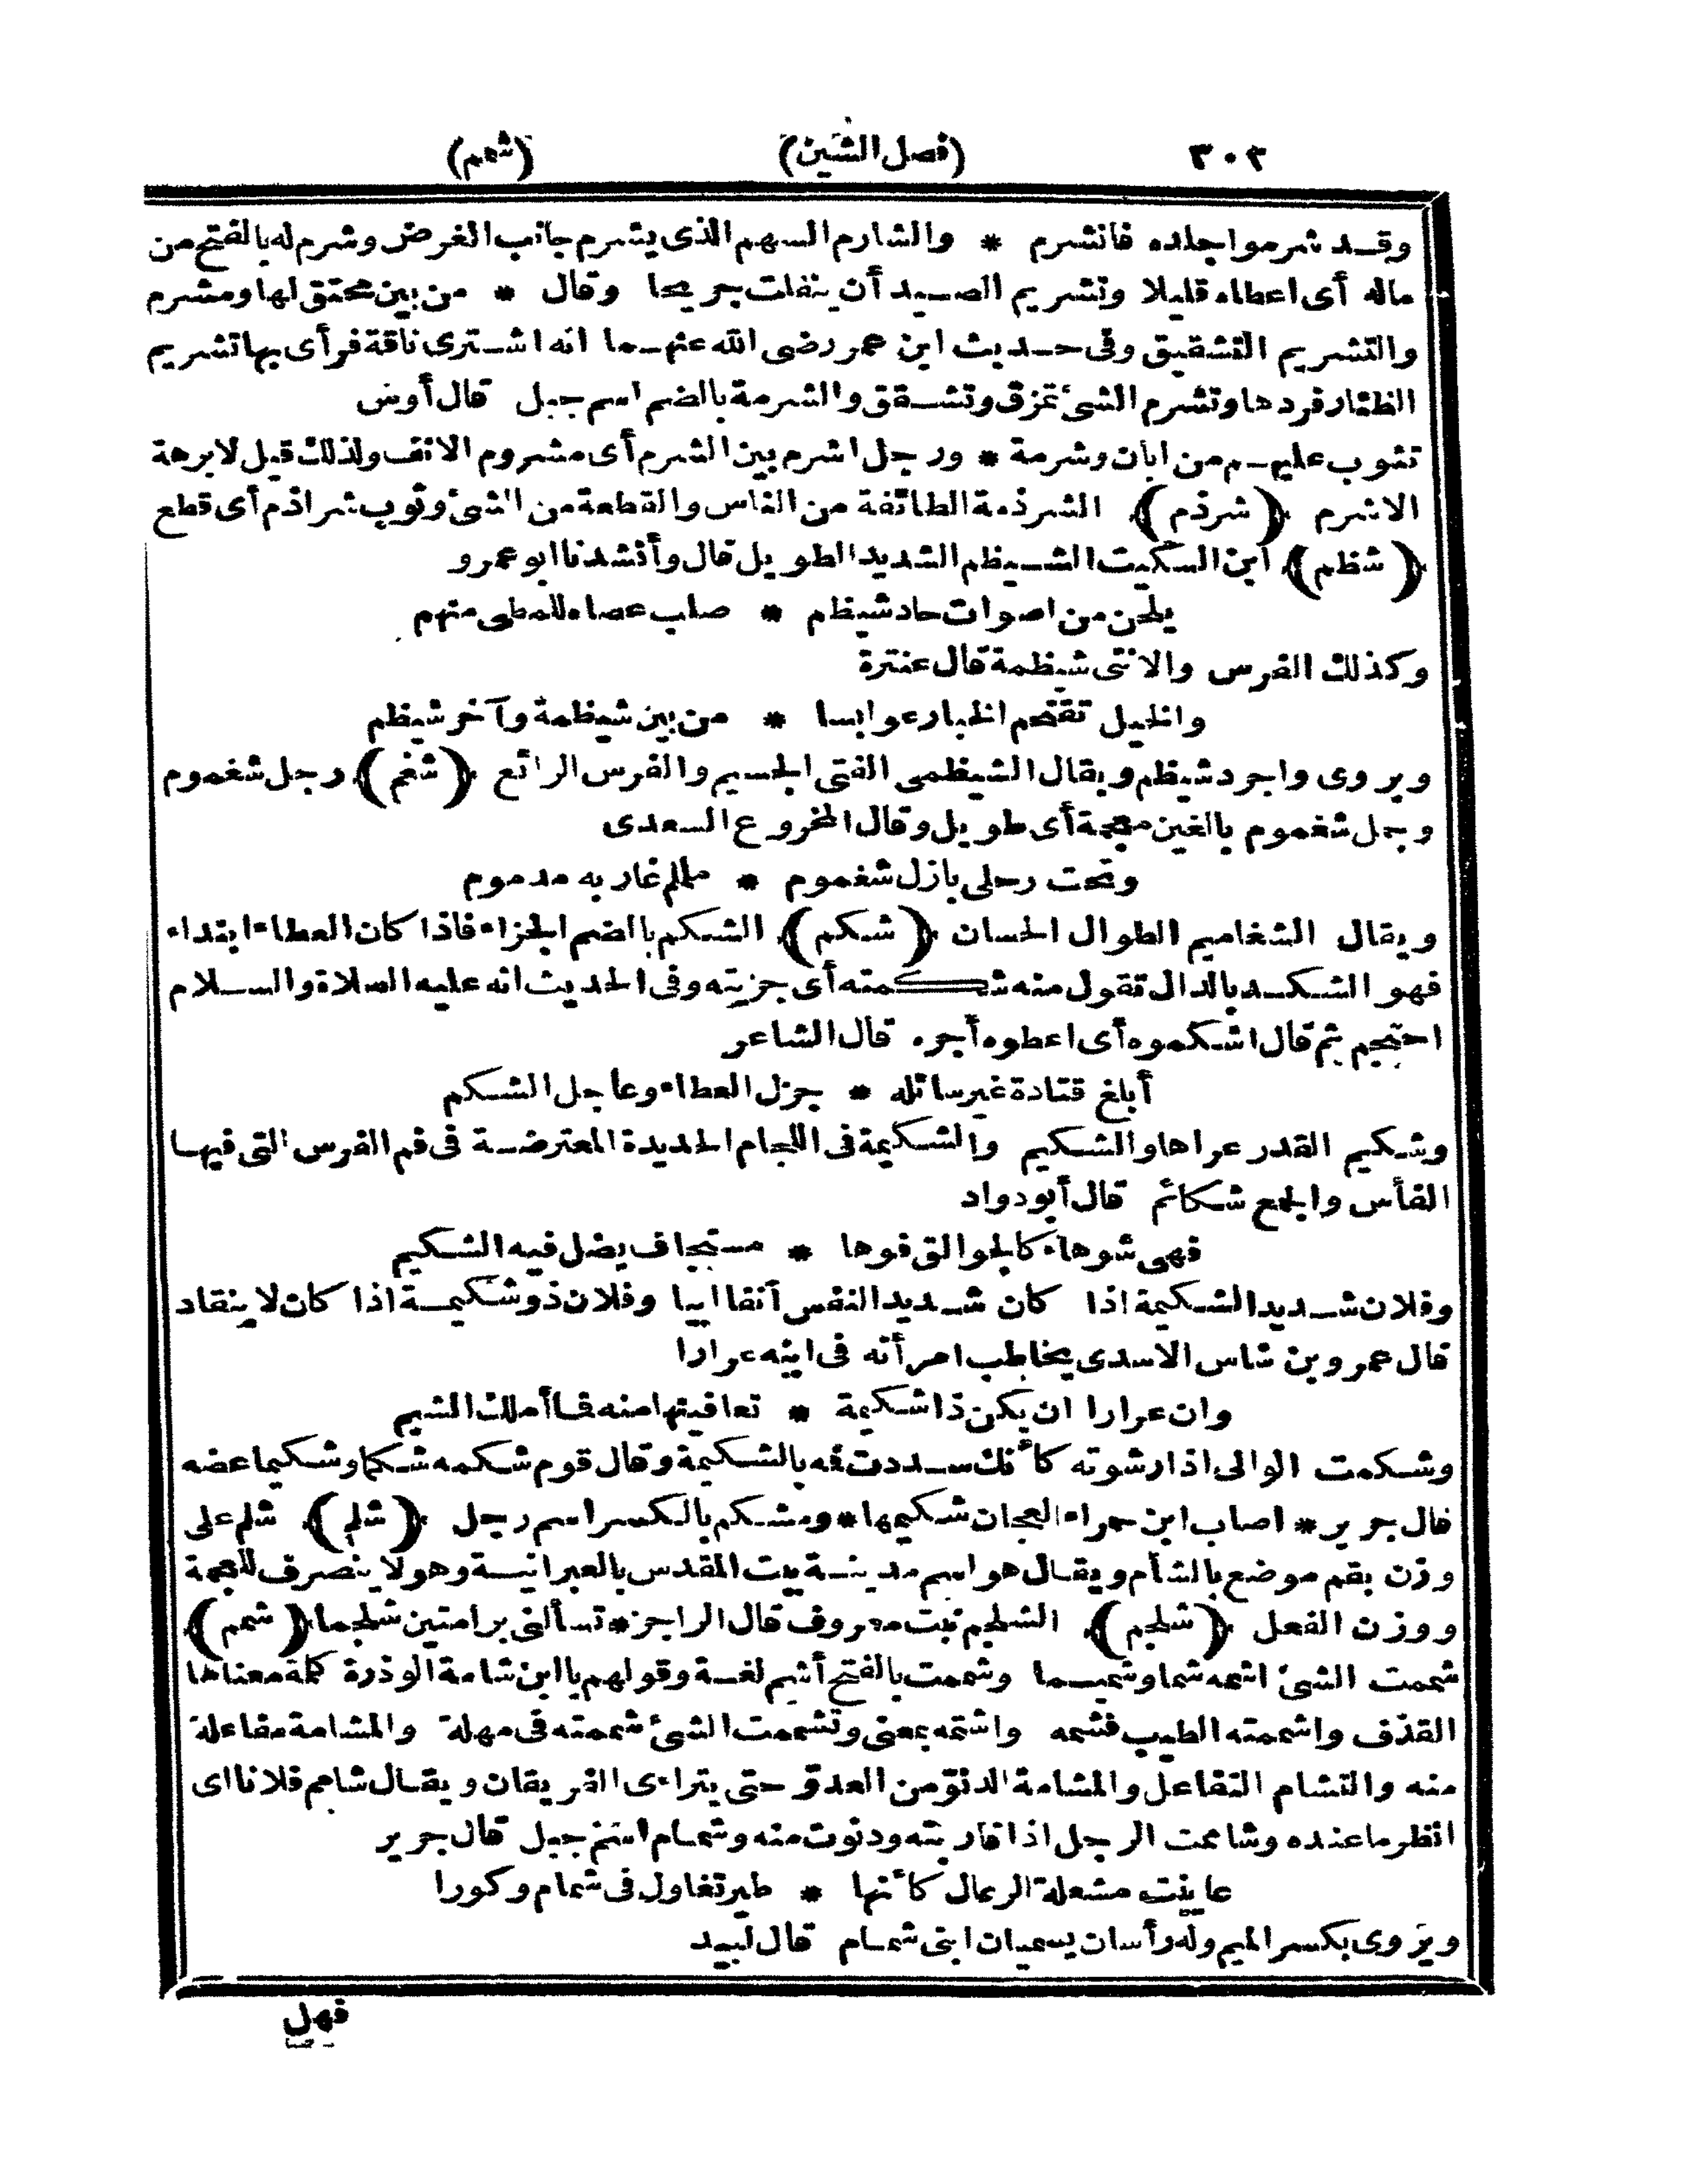 ٣٠٢ (فصل الشين) (شمم)
وقد شرموا جلده فانشرم * والشارم السهم الذى يشرم جانب الغرض وشرم له بالفتح من
ماله أى اعطاه قليلا وتشريم الصيد أن ينفلت جريحا وقال * من بين محتق لها ومشرم
والتشريم التشقيق وفى حديث ابن عمر رضى الله عنهما انه اشترى ناقة فرأى بها تشريم
الظئار فردها وتشرم الشئ تمزق وتشقق والشرمة بالضم اسم جبل قال أوس
تثوب عليهم من ابان وشرمة * ورجل اشرم بين الشرم أى مشروم الانف ولذلك قيل لابرهة
الاشرم ﴿شرذم﴾ الشرذمة الطائفة من الناس والقطعة من الشئ وثوب شراذم أى قطع
﴿شظم﴾ ابن السكيت الشيظم الشديد الطويل قال وأنشدنا ابو عمرو
يلحن من اصوات حاد شيظم * صلب عصاه للمطى منهم
وكذلك الفرس والانثى شيظمة قال عنترة
والخيل تقتحم الخبار عوابسا * من بين شيظمة وآخر شيظم
ويروى واجرد شيظم ويقال الشيظمى الفتى الجسيم والفرس الرائع ﴿شغم﴾ رجل شغموم
وجمل شغموم بالغين معجمة أى طويل وقال المخروع السعدى
وتحت رحلى بازل شغموم * ململم غاربه مدموم
ويقال الشغاميم الطوال الحسان ﴿شكم﴾ الشكم بالضم الجزاء فاذا كان العطاء ابتداء
فهو الشكد بالدال تقول منه شكمته أى جزيته وفى الحديث انه عليه الصلاة والسلام
احتجم ثم قال اشكموه أى اعطوه أجره قال الشاعر
أبلغ قتادة غير سائله * جزل العطاء وعاجل الشكم
وشكيم القدر عراها والشكيم والشكيمة فى اللجام الحديدة المعترضة فى فم الفرس التى فيها
الفأس والجمع شكائم قال أبو دواد
فهى شوهاء كالجوالق فوها * مستجاف يضل فيه الشكيم
وفلان شديد الشكيمة اذا كان شديد النفس آنفا ابيا وفلان ذو شكيمة اذا كان لا ينقاد
قال عمرو بن شاس الاسدى يخاطب امرأته فى ابنه عرارا
وان عرارا ان يكن ذا شكيمة * تعافينها منه فما أملك الشيم
وشكمت الوالى اذا رشوته كأنك سددت فمه بالشكيمة وقال قوم شكمه شكما وشكيما عضه
قال جرير * اصاب ابن حمراء العجان شكيمها * ومشكم بالكسر اسم رجل ﴿شلم﴾ شلم على
وزن بقم موضع بالشأم ويقال هو اسم مدينة بيت المقدس بالعبرانية وهو لا ينصرف للعجمة
ووزن الفعل ﴿شلجم﴾ الشلجم نبت معروف قال الراجز * تسألنى برامتين شلجما ﴿شمم﴾
شممت الشئ اشمه شما وشميما وشممت بالفتح أشم لغة وقولهم يا ابن شامة الوذرة كلة معناها
القذف واشممته الطيب فشمه واشتمه بمعنى وتشممت الشئ شممته فى مهلة والمشامة مفاعلة
منه والتشام التفاعل والمشامة الدنوّ من العدوّ حتى يتراءى الفريقان ويقال شامم فلانا اى
انظر ما عنده وشاممت الرجل اذا قاربته ودنوت منه وشمام اسم جبل قال جرير
عاينت مشعلة الرعال كأنها * طير تغاول فى شمام وكورا
ويروى بكسر الميم وله رأسان يسميان ابنى شمام قال لبيد
فهل